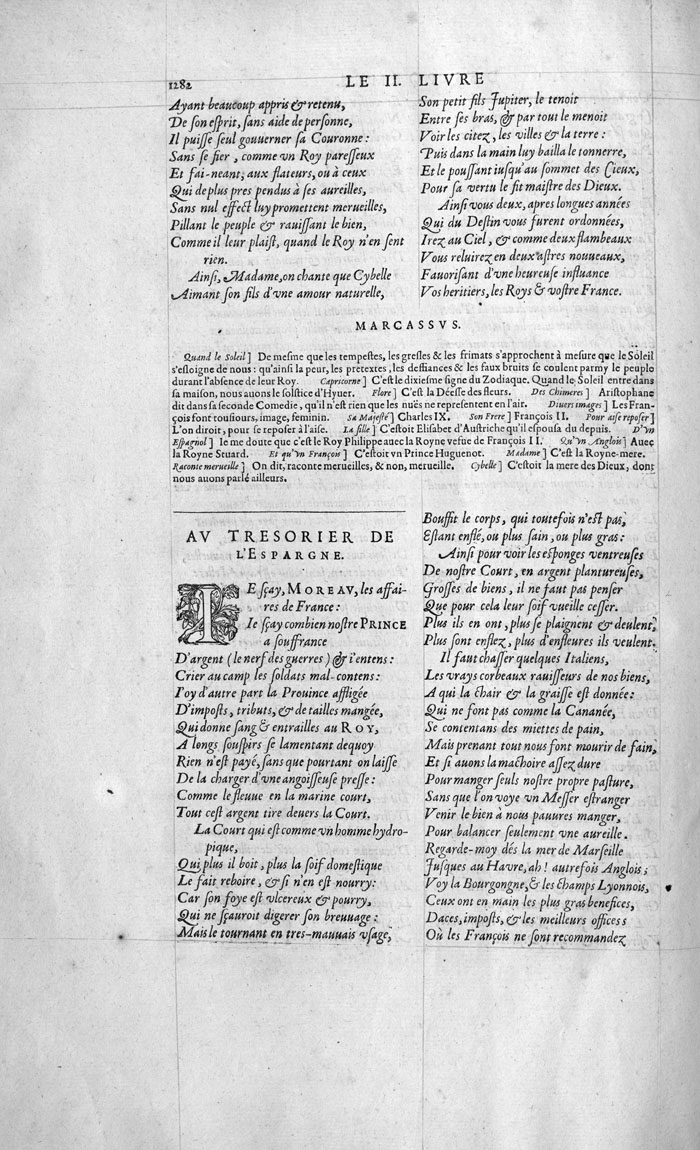 1282
LE II. LIVRE
Ayant beaucoup appris & retenu,
De son esprit, sans aide de personne,
Il puisse seul gouuerner sa Couronne:
Sans se fier, comme vn Roy paresseux
Et fai-neant, aux flateurs, ou à ceux
Qui de plus pres pendus à ses aureilles,
Sans nul effect luy promettent merueilles,
Pillant le peuple & rauissant le bien,
Comme il leur plaist, quand le Roy n'en sent
rien.
Ainsi, Madame, on chante que Cybelle
Aimant son fils d'vne amour naturelle,
Son petit fils Jupiter, le tenoit
Entre ses bras, & par tout le menoit
Voir les citez, les villes & la terre:
Puis dans la main luy bailla le tonnerre,
Et le poussant iusqu'au sommet des Cieux,
Pour sa vertu le fit maistre des Dieux.
Ainsi vous deux, apres longues années
Qui du Destin vous furent ordonnées,
Irez au Ciel, & comme deux flambeaux
Vous reluirez en deux astres nouueaux,
Fauorisant d'vne heureuse influance
Vos heritiers, les Roys & vostre France.
MARCASSVS.
Quand le Soleil] De mesme que les tempestes, les gresles & les frimats s'approchent à mesure que le Soleil
s'esloigne de nous: qu'ainsi la peur, les pretextes, les deffiances & les faux bruits se coulent parmy le peuple
durant l'absence de leur Roy. Capricorne] C'est le dixiesme signe du Zodiaque. Quand le Soleil entre dans
sa maison, nous auons le solstice d'Hyuer. Flore] C'est la Déesse des fleurs. Des Chimeres] Aristophane
dit dans sa seconde Comedie, qu'il n'est rien que les nuës ne representent en l'air. Diuers images] Les Fran-
çois font tousiours, image, feminin. Sa Majesté] Charles IX. Son Frere] François II. Pour aise reposer]
L'on diroit, pour se reposer à l'aise. La fille] C'estoit Elisabet d'Austriche qu'il espousa du depuis. D'vn
Espagnol] Ie me doute que c'est le Roy Philippe auec la Royne vefue de François II. Qu'vn Anglois] Auec
la Royne Stuard. Et qu'vn François] C'estoit vn Prince Huguenot. Madame] C'est la Royne-mere.
Raconte merueille] On dit, raconte merueilles, & non, merueille. Cybelle] C'estoit la mere des Dieux, dont
nous auons parlé ailleurs.
AV TRESORIER DE
L'ESPARGNE.
IE sçay, MOREAV, les affai-
res de France:
Ie sçay combien nostre PRINCE
a souffrance
D'argent (le nerf des guerres) & i'entens:
Crier au camp les soldats mal-contens:
I'oy d'autre part la Prouince affligée
D'imposts, tributs, & de tailles mangée,
Qui donne sang & entrailles au ROY,
A longs souspirs se lamentant dequoy
Rien n'est payé, sans que pourtant on laisse
De la charger d'vne angoisseuse presse:
Comme le fleuue en la marine court,
Tout cest argent tire deuers la Court.
La Court qui est comme vn homme hydro-
pique,
Qui plus il boit, plus la soif domestique
Le fait reboire, & si n'en est nourry:
Car son foye est vlcereux & pourry,
Qui ne sçauroit digerer son breuuage:
Mais le tournant en tres-mauuais vsage,
Bouffit le corps, qui toutefois n'est pas,
Estant enflé, ou plus sain, ou plus gras:
Ainsi pour voir les esponges ventreuses
De nostre Court, en argent plantureuses,
Grosses de biens, il ne faut pas penser
Que pour cela leur soif vueille cesser.
Plus ils en ont, plus se plaignent & deulent,
Plus sont enflez, plus d'enfleures ils veulent.
Il faut chasser quelques Italiens,
Les vrays corbeaux rauisseurs de nos biens,
A qui la chair & la graisse est donnée:
Qui ne font pas comme la Cananée,
Se contentans des miettes de pain,
Mais prenant tout nous font mourir de faim,
Et si auons la machoire assez dure
Pour manger seuls nostre propre pasture,
Sans que l'on voye vn Messer estranger
Venir le bien à nous pauures manger,
Pour balancer seulement vne aureille.
Regarde-moy dés la mer de Marseille
Jusques au Havre, ah! autrefois Anglois;
Voy la Bourgongne, & les champs Lyonnois,
Ceux ont en main les plus gras benefices,
Daces, imposts, & les meilleurs offices
Où les François ne sont recommandez